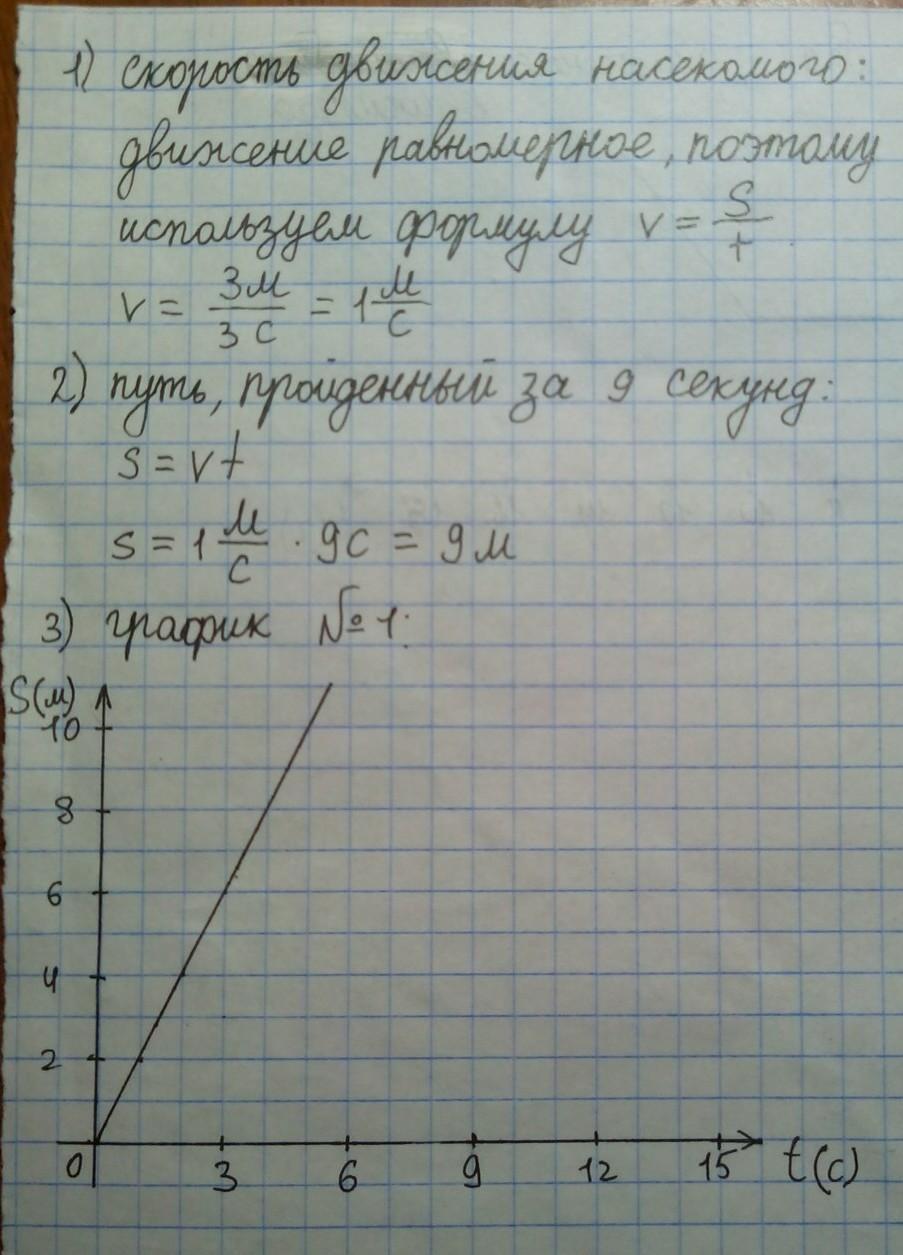 1) скорость движения насекомого:
движение равномерное, поэтому
используем формулу v = S/t
v = 3м/3с = 1 м/с
2) путь, пройденный за 9 секунд:
s = vt
s = 1 м/с · 9с = 9м
3) график №1:
S(м)
10
8
6
4
2
0 3 6 9 12 15 t(с)